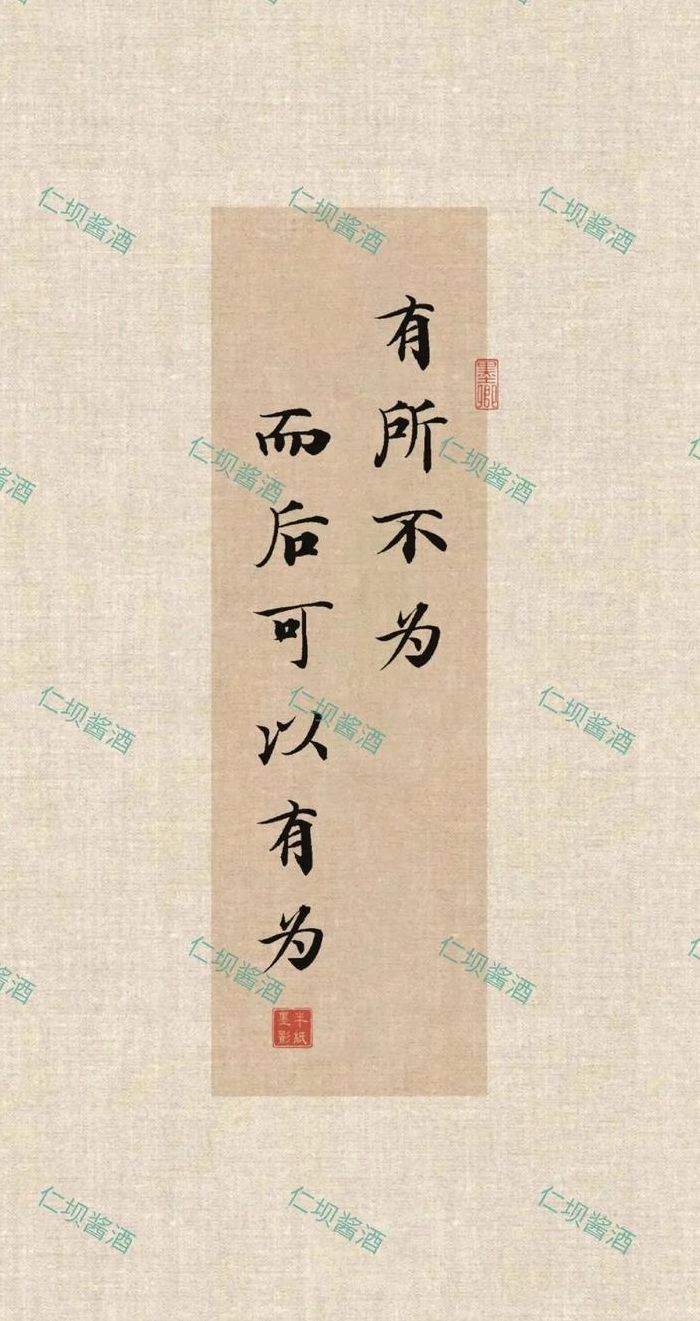 有所不为
而后可以有为
墨卿
半纸
墨影
仁坝酱酒
仁坝酱酒
仁坝酱酒
仁坝酱酒
仁坝酱酒
仁坝酱酒
仁坝酱酒
仁坝酱酒
仁坝酱酒
仁坝酱酒
仁坝酱酒
仁坝酱酒
仁坝酱酒